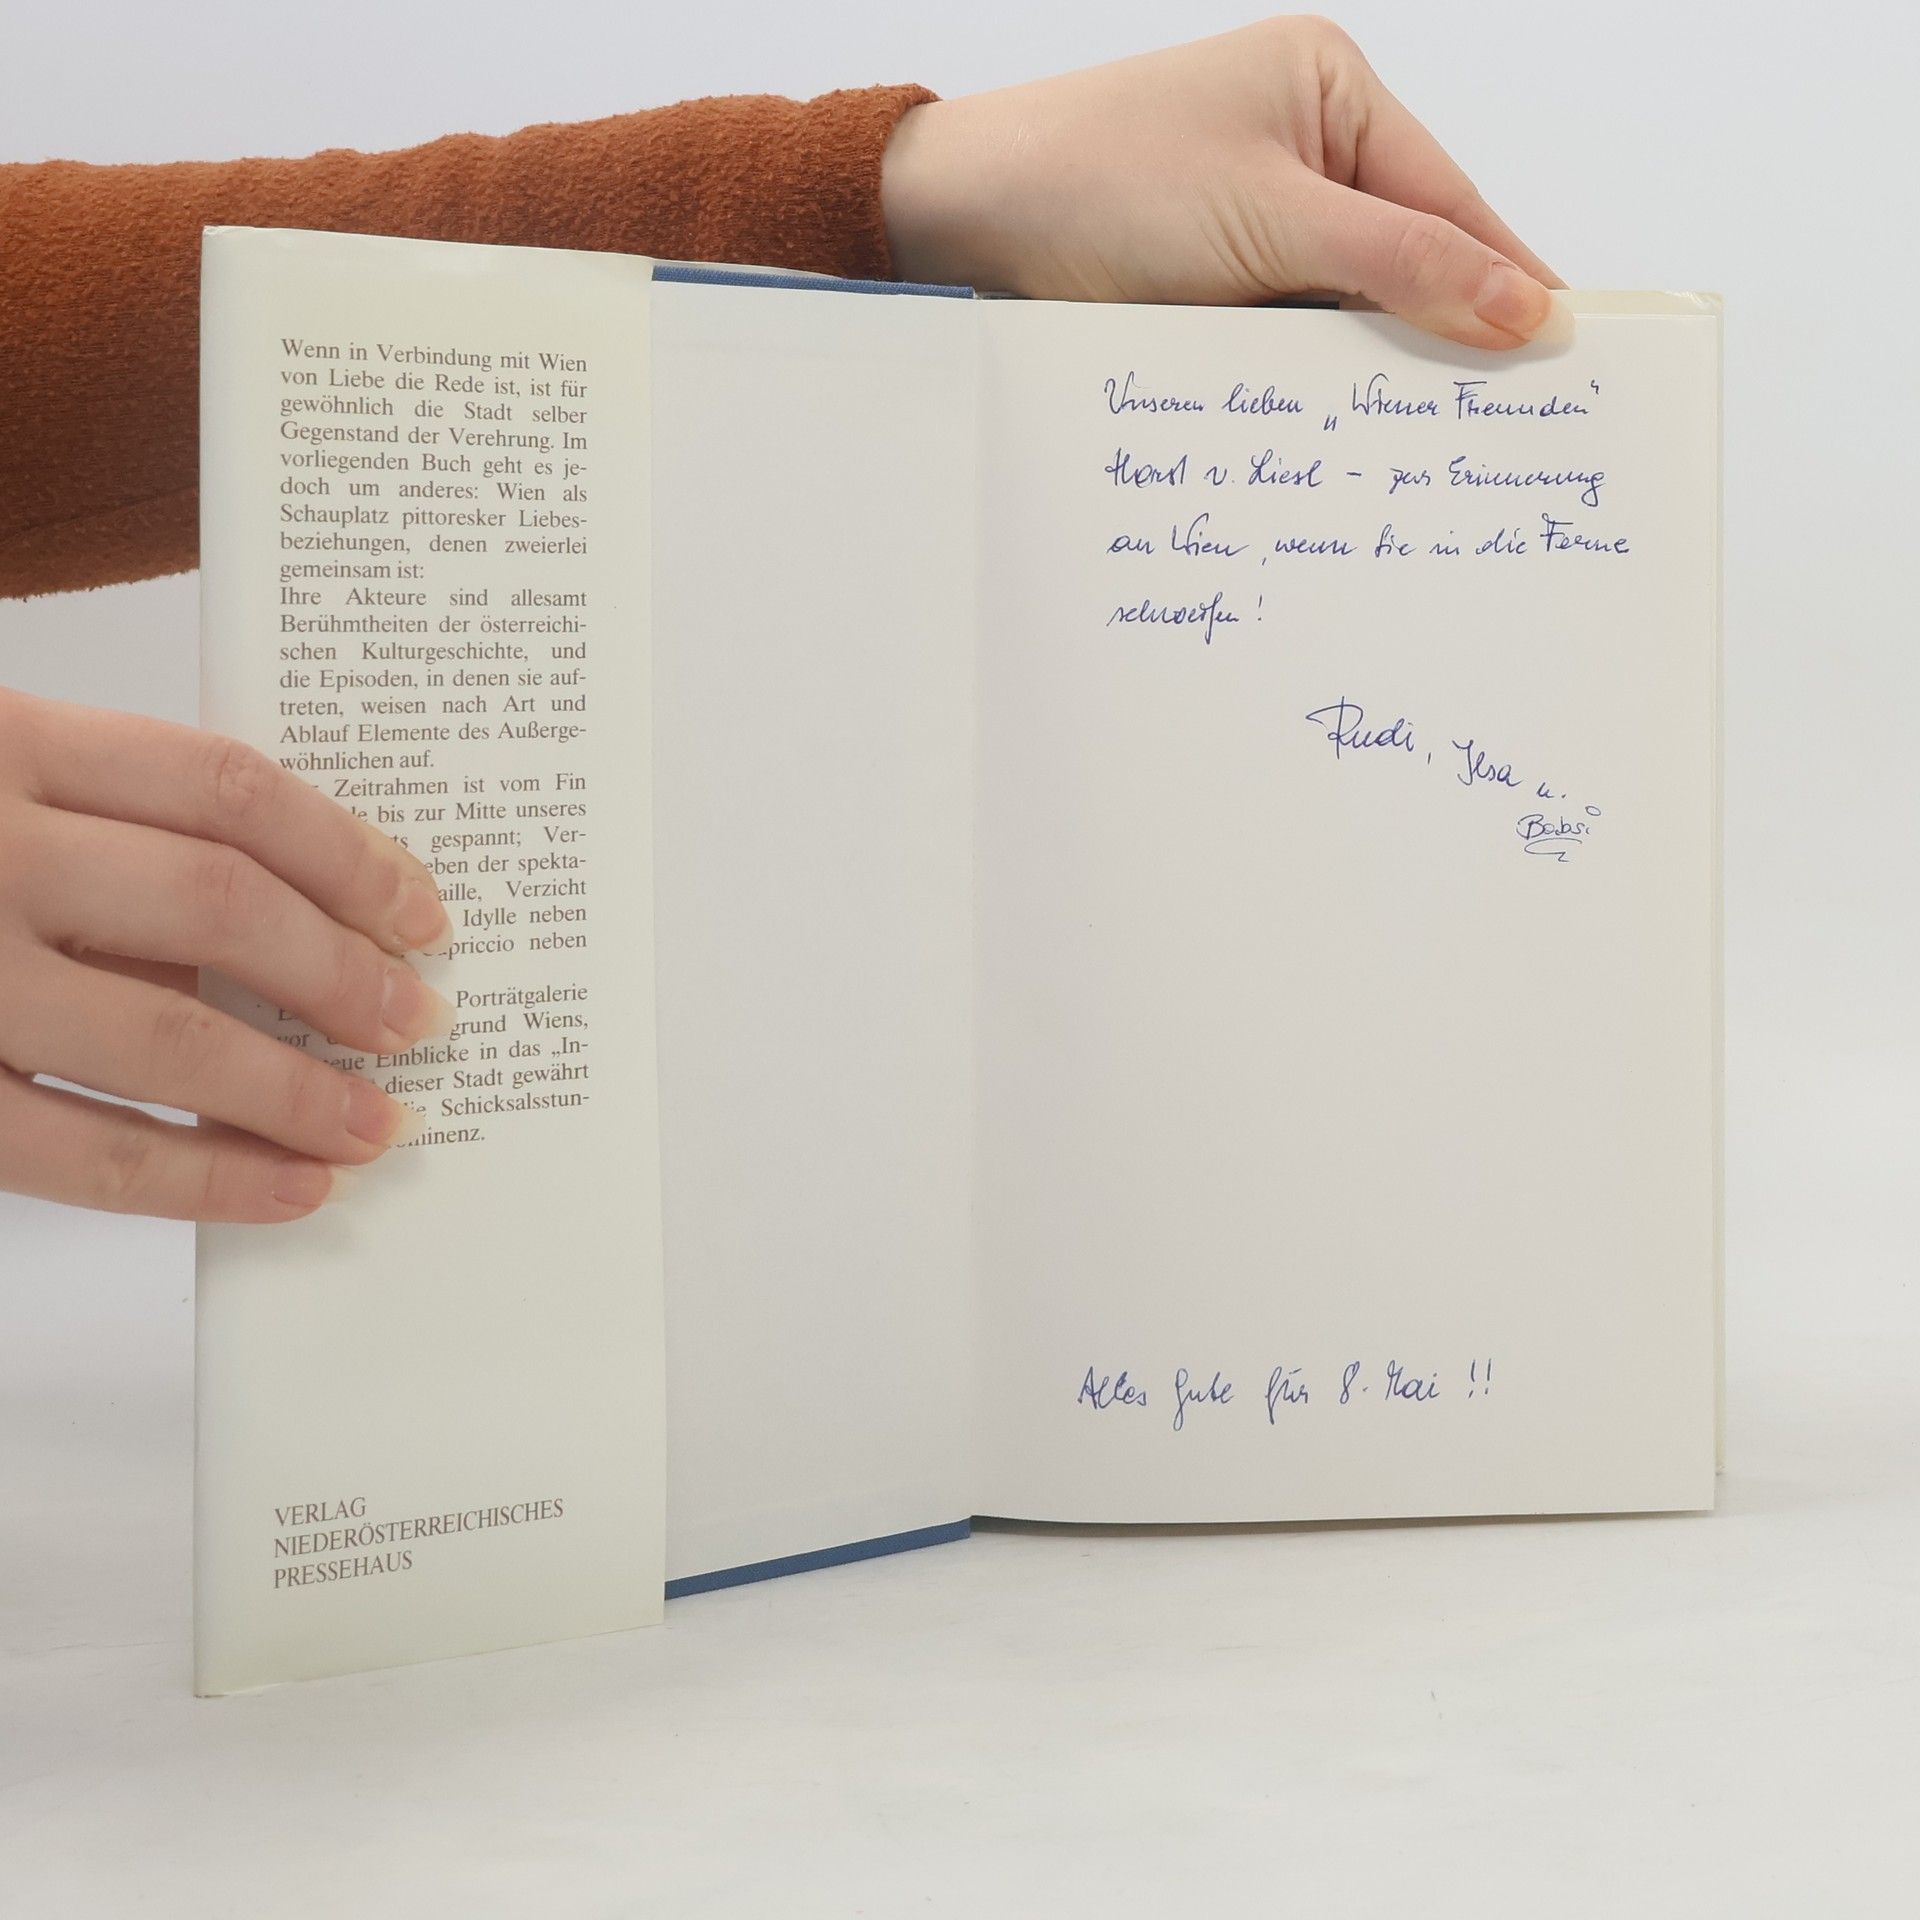 Wenn in Verbindung mit Wien
von Liebe die Rede ist, ist für
gewöhnlich die Stadt selber
Gegenstand der Verehrung. Im
vorliegenden Buch geht es je-
doch um anderes: Wien als
Schauplatz pittoresker Liebes-
beziehungen, denen zweierlei
gemeinsam ist:
Ihre Akteure sind allesamt
Berühmtheiten der österreichi-
schen Kulturgeschichte, und
die Episoden, in denen sie auf-
treten, weisen nach Art und
Ablauf Elemente des Außerge-
wöhnlichen auf.
Zeitrahmen ist vom Fin
bis zur Mitte unseres
gespannt; Ver-
der spekta-
Verzicht
Idylle neben
neben
Porträtgalerie
Wiens,
Einblicke in das „In-
dieser Stadt gewährt
Schicksalsstun-
VERLAG
NIEDERÖSTERREICHISCHES
PRESSEHAUS
Unseren lieben „Wiener Freunden“
Horst u. Liesl – zur Erinnerung
an Wien, wenn Sie in die Ferne
schweifen!
Rudi, Ilsa u.
Babsi
Alles Gute für 8. Mai !!